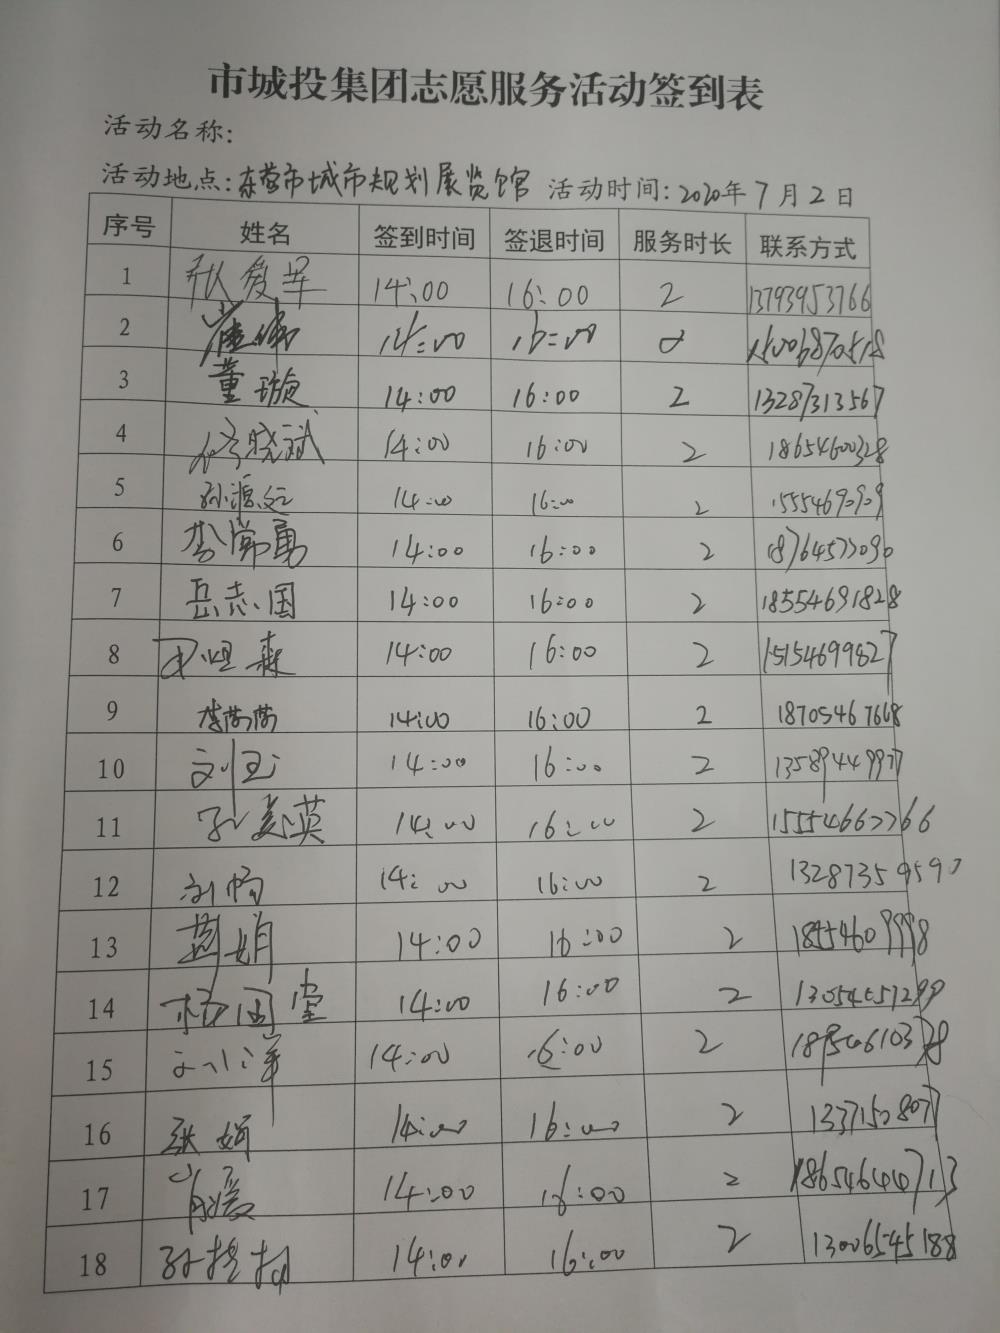 市城投集团志愿服务活动签到表
活动名称:
活动地点:东营市城市规划展览馆 活动时间:2020年7月2日
序号 姓名 签到时间 签退时间 服务时长 联系方式
1 张爱军 14:00 16:00 2 13793953766
2 崔伟 14:00 16:00 2
3 董璇 14:00 16:00 2 13287313567
4 修晓斌 14:00 16:00 2 18654600328
5 孙源远 14:00 16:00 2 15554690909
6 李常勇 14:00 16:00 2 18764577090
7 岳志国 14:00 16:00 2 18554691828
8 14:00 16:00 2 15154699827
9 李茜茜 14:00 16:00 2 18705467668
10 刘玉 14:00 16:00 2 13589449977
11 孙美英 14:00 16:00 2 15554667766
12 刘畅 14:00 16:00 2 13287359590
13 14:00 16:00 2
14 14:00 16:00 2
15 刘小洋 14:00 16:00 2
16 张娟 14:00 16:00 2 13371508077
17 肖媛 14:00 16:00 2 18654644713
18 14:00 16:00 2 13006545188